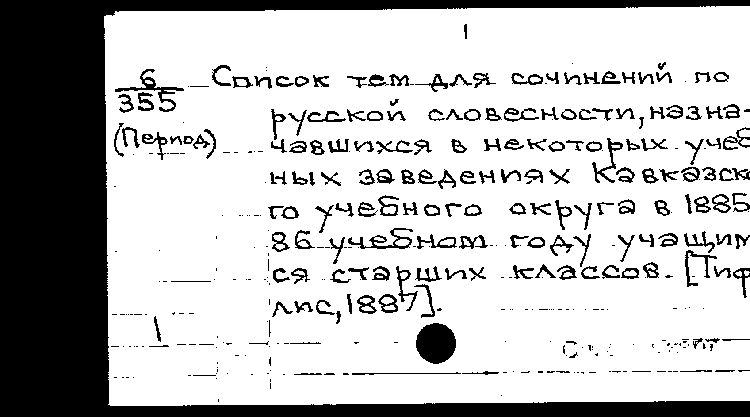 1
6 Список тем для сочинений по
355 русской словесности, назна-
(Период) чавшихся в некоторых учеб
ных заведениях Кавказско
го учебного округа в 1885
86 учебном году учащим
ся старших классов. [Тиф
лис, 1887].
1